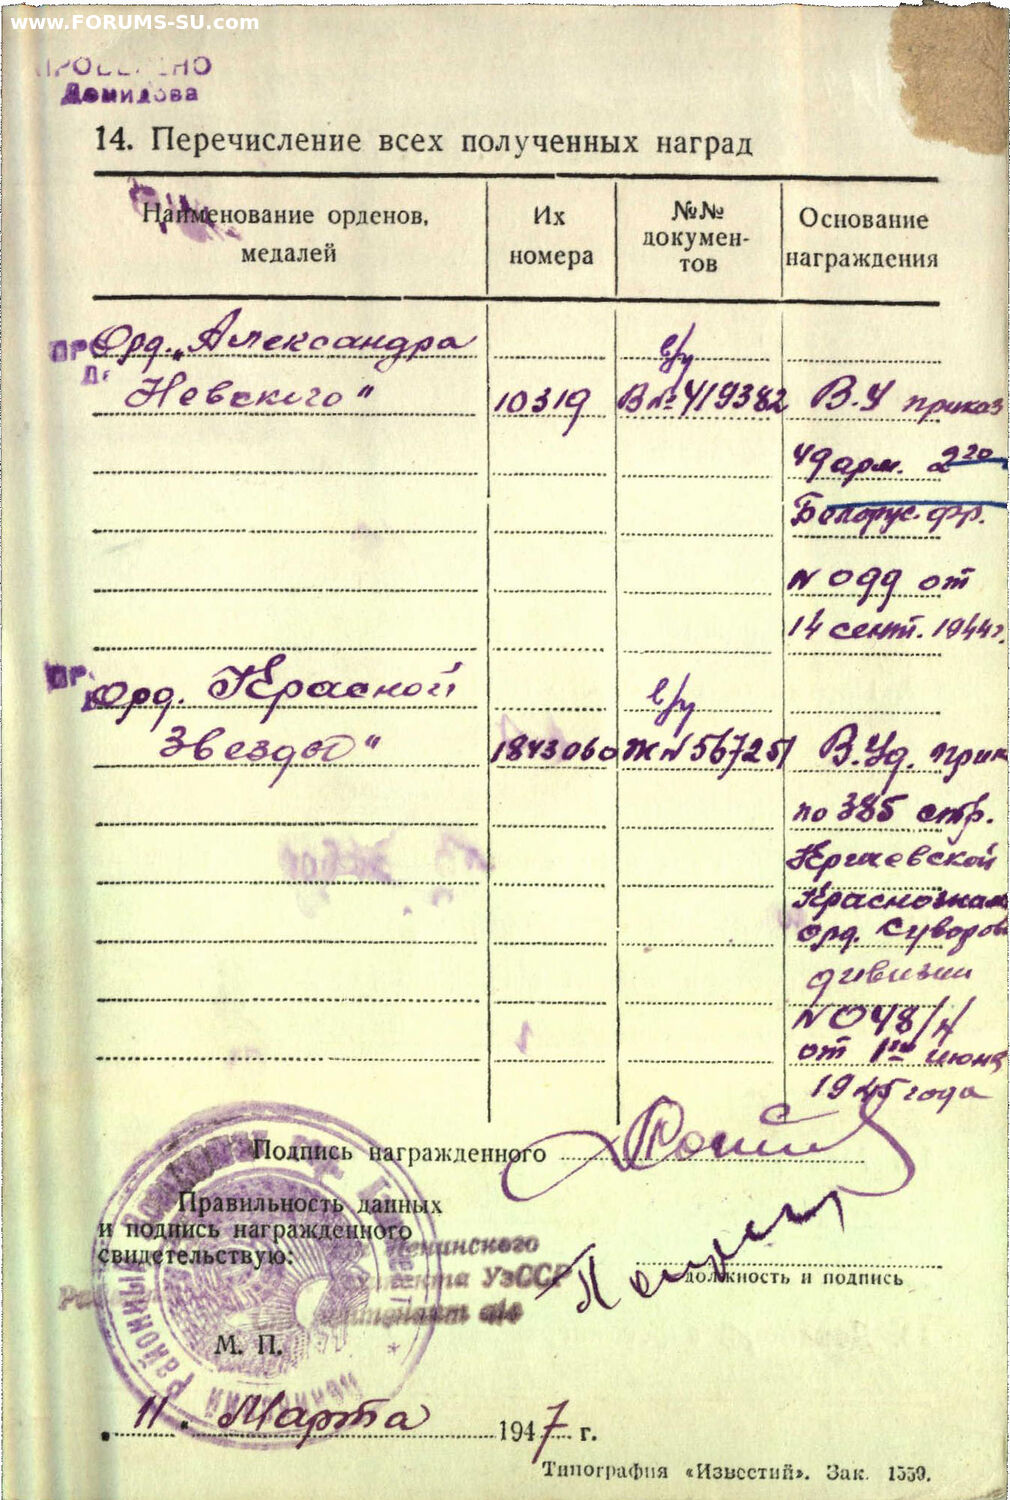 www.FORUMS-SU.com
Демидова
14. Перечисление всех полученных наград
Наименование орденов, медалей
Их номера
№№ докумен- тов
Основание награждения
Орд. „Александра
в/у
Невского"
10319
В № 419382
В.У приказ
49 арм. 2го
Белорус. фр.
N 099 от
14 сент. 1944г.
Орд. Красной
в/у
Звезды"
1843060
Ж N 567251
В.Уд. прик
по 385 стр.
Кричевской
Краснознам
орд. Суворов
дивизии
N 048/н
от 1го июня
1945 года
Подпись награжденного
Правильность данных
и подпись награжденного
свидетельствую:
Ленинского
УзССР
должность и подпись
М. П.
„ 11 „ Марта 1947 г.
Типография «Известий». Зак. 1559.